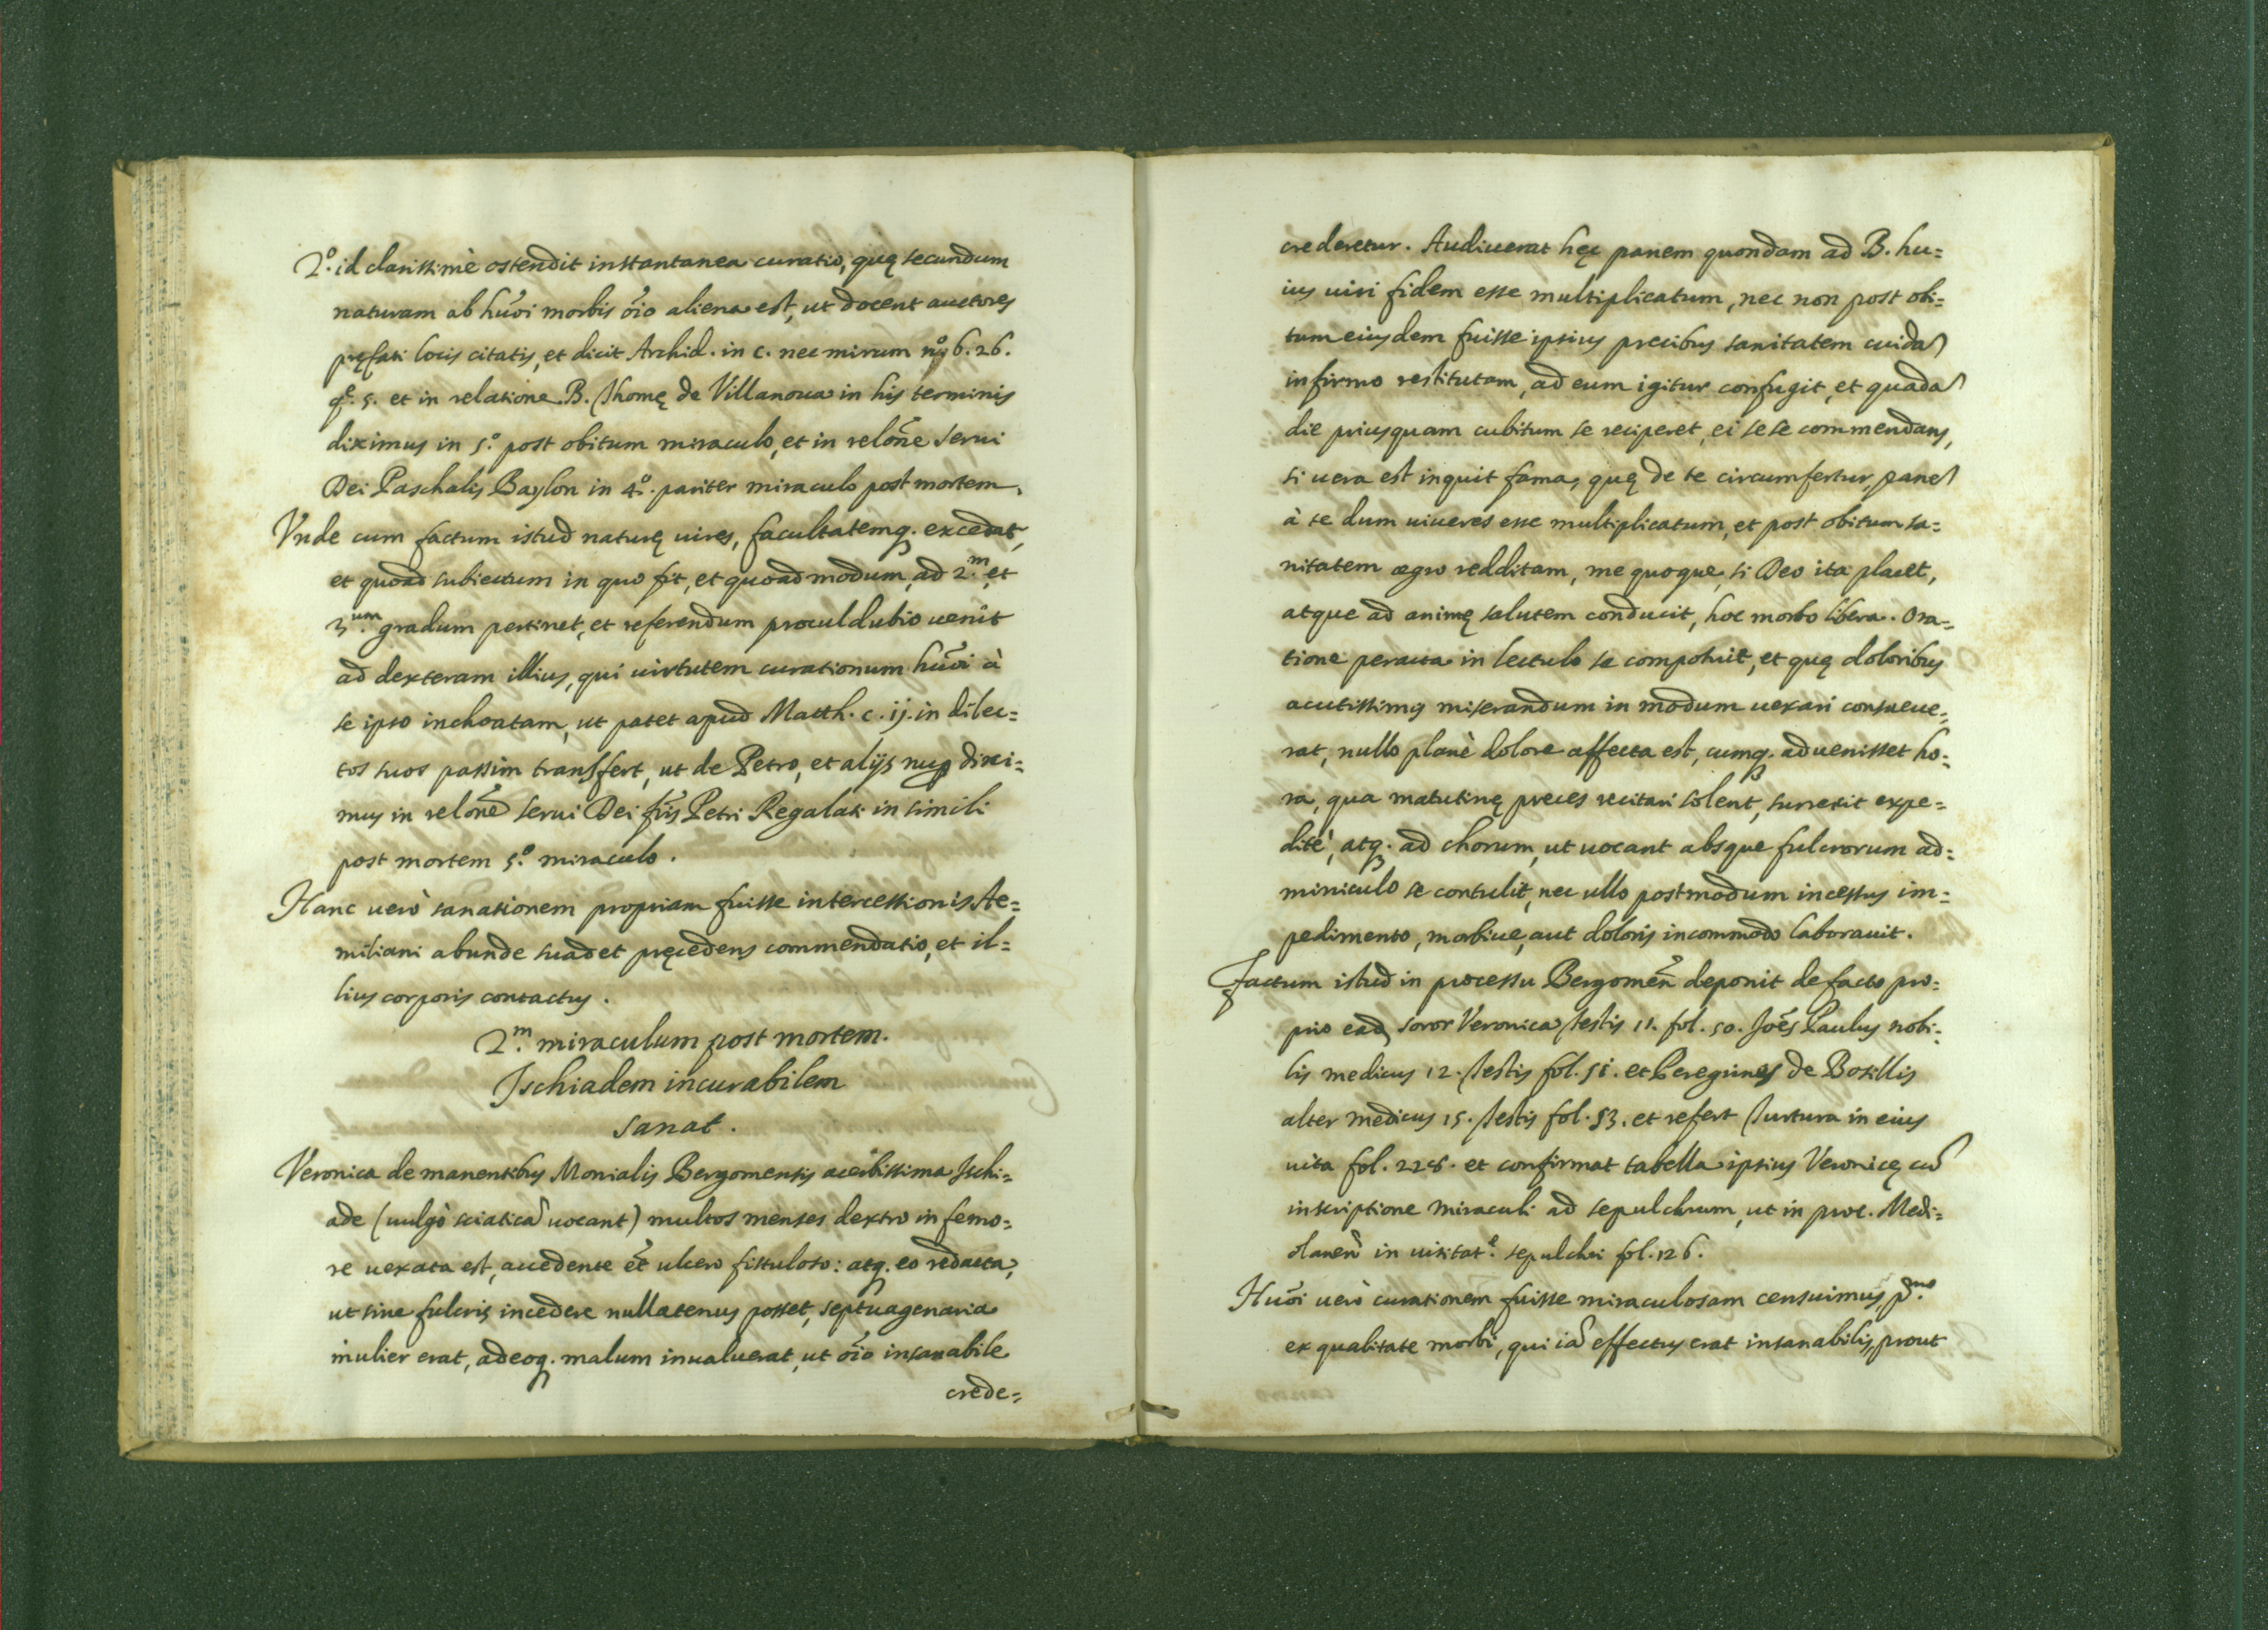 2.º id clarissimè ostendit instantanea curatio, quę secundum
naturam ab hũoi morbis õio aliena est, ut docent auctores
pręfati locis citatis, et dicit Archid. in c. nec mirum 26.
q. 5. et in relatione B. Thomę de Villanoua in his terminis
diximus in 5.º post obitum miraculo, et in relõne serui
Dei Paschalis Baylon in 4.º pariter miraculo post mortem.
Vnde cum factum istud naturę uires, facultatemq. excedat,
et quoad subiectum in quo fit, et quoad modum, ad 2.m et
3.um gradum pertinet, et referendum proculdubio uenit
ad dexteram illius, qui uirtutem curationum hũoi à
se ipso inchoatam, ut patet apud Matth. c. ij. in dilec=
tos suos passim transffert, ut de Petro, et alijs nup dixi=
mus in relõne serui Dei fr̃is Petri Regalati in simili
post mortem 5.º miraculo.
Hanc uerò sanationem propriam fuisse intercessionis Ae=
miliani abunde suadet pręcedens commendatio, et il=
lius corporis contactus.
2.m miraculum post mortem.
Ischiadem incurabilem
sanat.
Veronica de manentibus Monialis Bergomensis acerbissima Ischi=
ade (uulgò sciaticã uocant) multos menses dextro in femo=
re uexata est, accedente et̃ ulcero fistuloso: atq. eo redacta,
ut sine fulcris incedere nullatenus posset, septuagenaria
mulier erat, adeoq. malum inualuerat, ut õio insanabile
crede=
crederetur. Audiuerat hęc panem quondam ad B. hu=
ius uiri fidem esse multiplicatum, nec non post obi=
tum eiusdem fuisse ipsius precibus sanitatem cuidã
infirmo restitutam, ad eum igitur confugit, et quadã
die priusquam cubitum se reciperet, ei sese commendans,
si uera est inquit fama, quę de te circumfertur, panẽ
à te dum uiueres esse multiplicatum, et post obitum sa=
nitatem ægro redditam, me quoque, si Deo ita placet,
atque ad animę salutem conducit, hoc morbo libera. Ora=
tione peracta in lectulo se composuit, et quę doloribus
acutissimis miserandum in modum uexari consueue=
rat, nullo planè dolore affecta est, cumq. aduenisset ho=
ra, qua matutinę preces recitari solent, surrexit expe=
ditè, atq. ad chorum, ut uocant absque fulcrorum ad=
miniculo se contulit, nec ullo postmodum incessus im=
pedimento, morbiue, aut doloris incommodo laborauit.
Factum istud in processu Bergomeñ deponit de facto pro=
prio ead. soror Veronica testis 11. fol. 50. Joẽs Paulus nobi=
lis medicus 12. testis fol. 51. et Peregrinus de Boxillis
alter medicus 15. testis fol. 53. et refert Turtura in eius
uita fol. 226. et confirmat tabella ipsius Veronicę cũ
inscriptione miraculi ad sepulchrum, ut in proc. Medi=
olaneñ in uisitat.e sepulchri fol. 126.
Hũoi uerò curationem fuisse miraculosam censuimus, p.mo
ex qualitate morbi, qui iã effectus erat insanabilis, prout